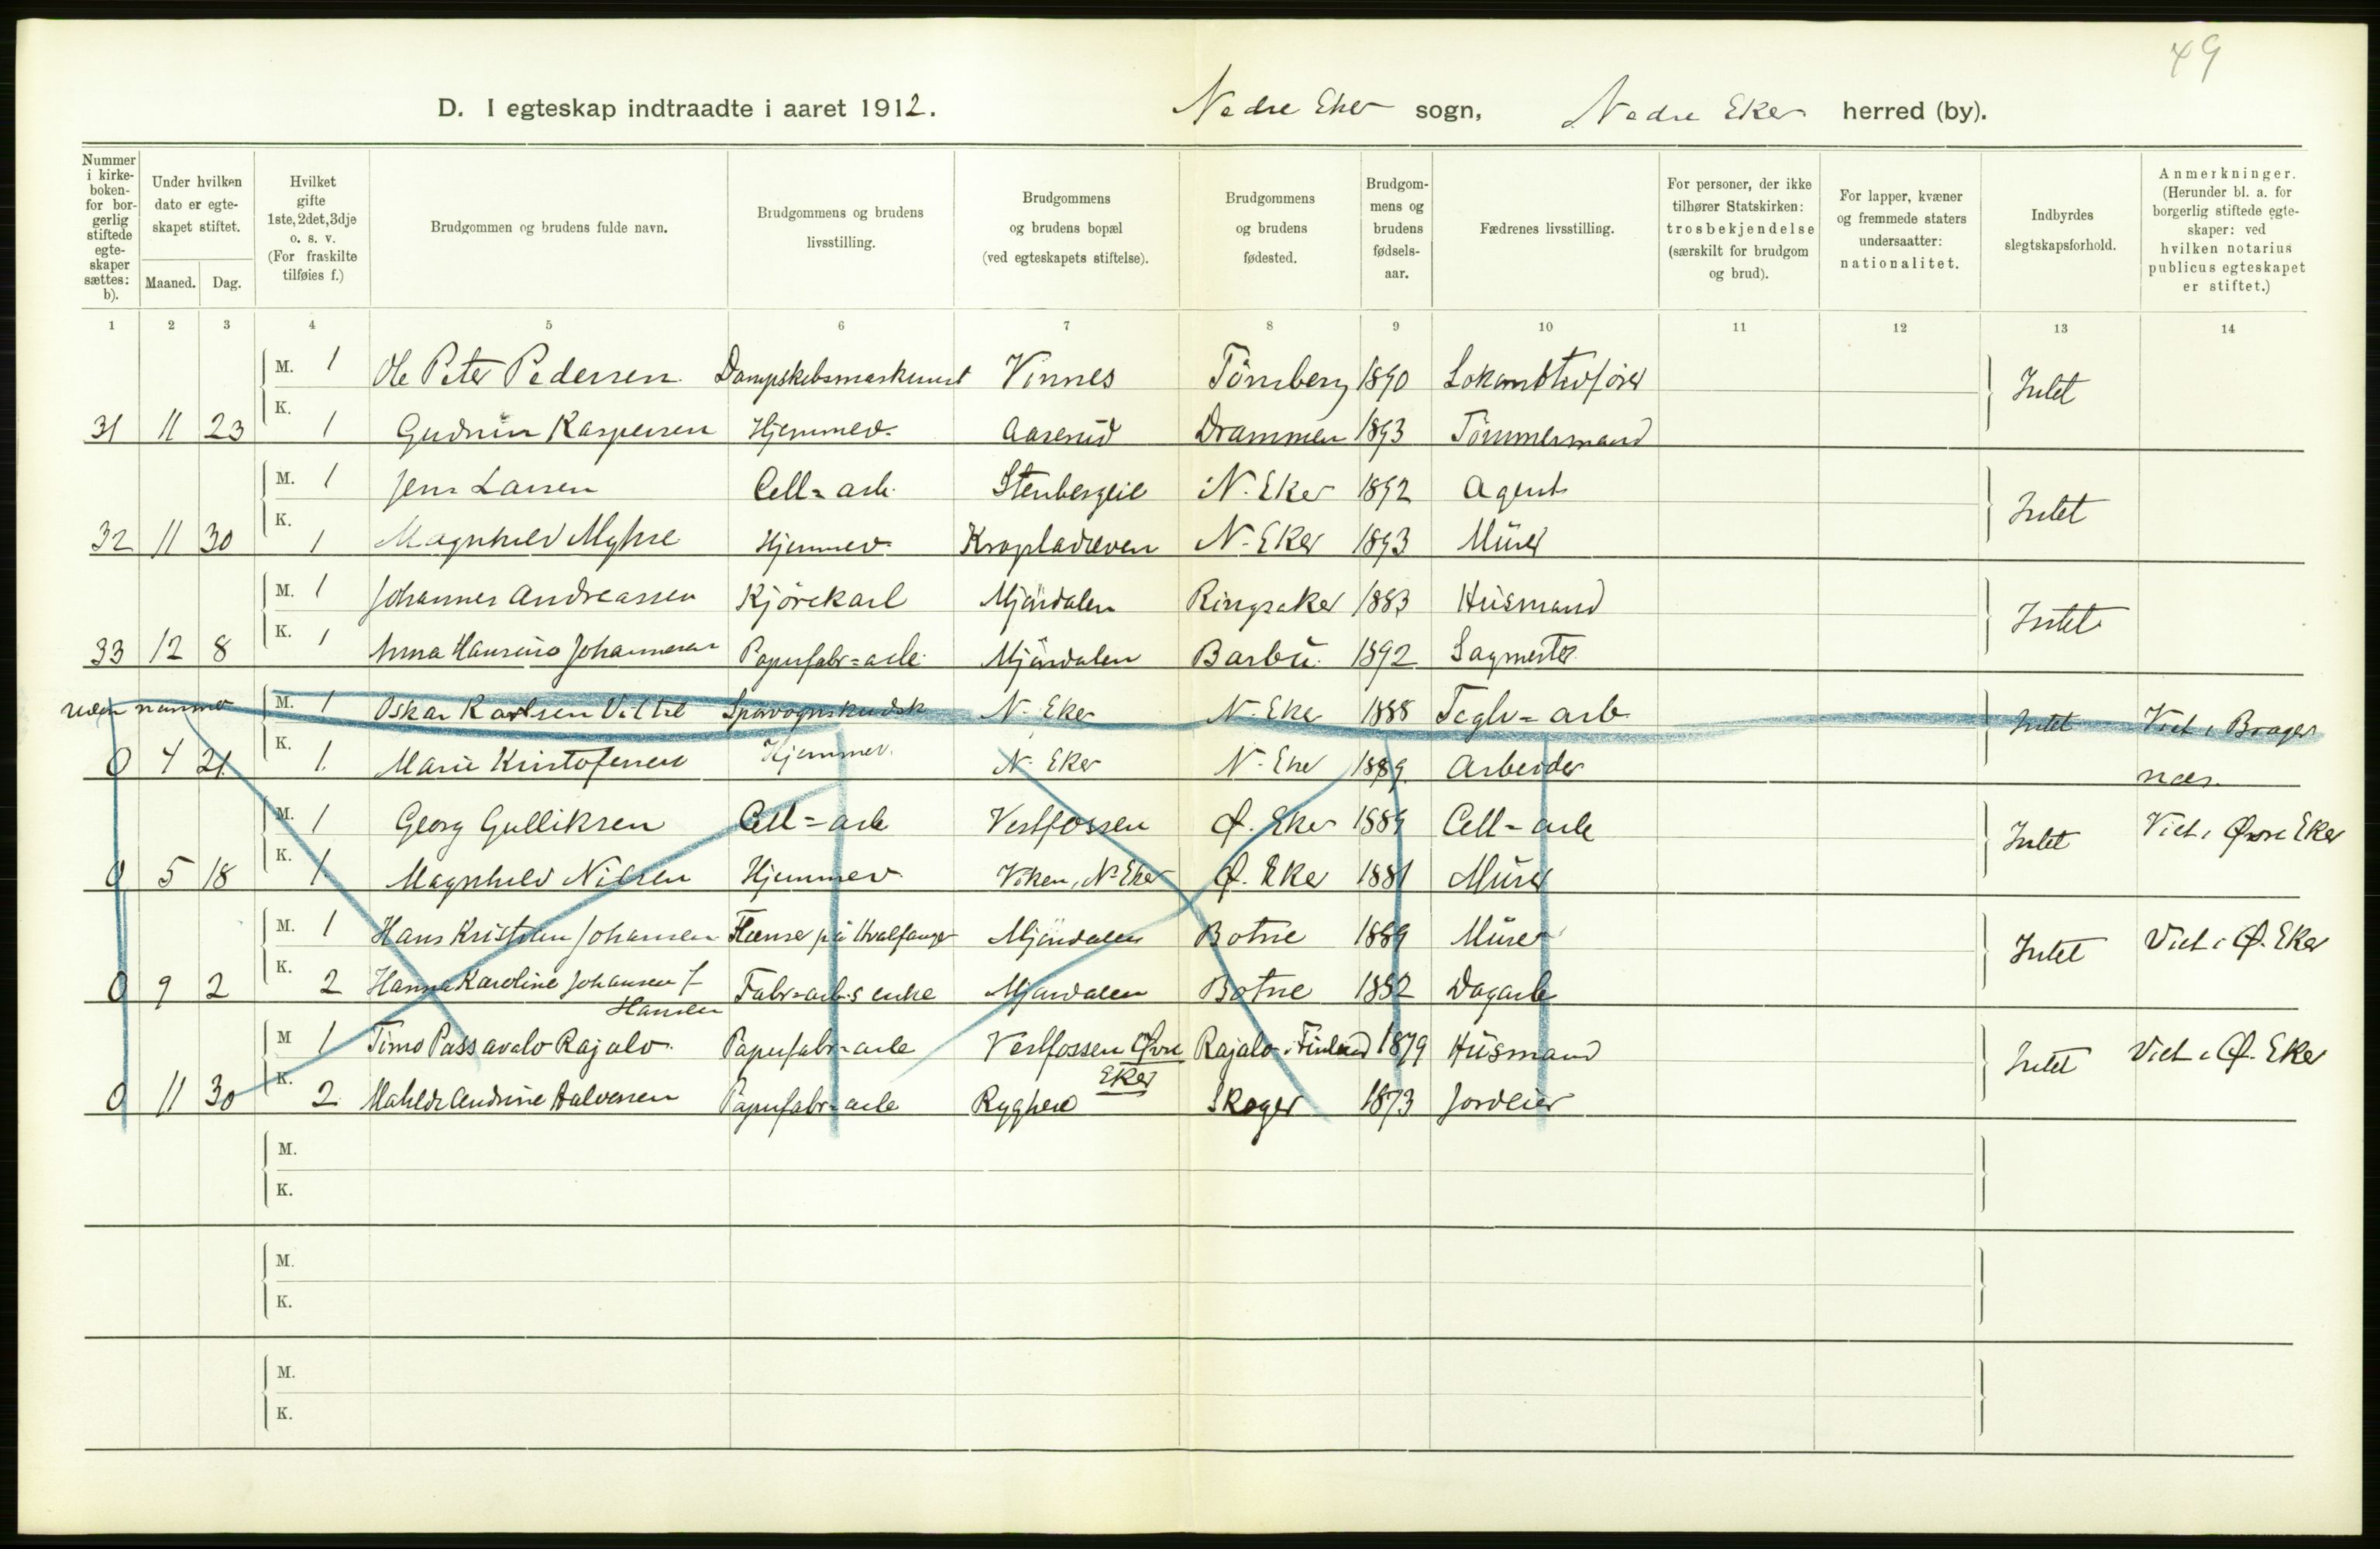 49
D. I egteskap indtraadte i aaret 1912. Nedre Eker sogn, Nedre Eker herred (by).
Nummer i kirkeboken- for borgerlig stiftede egteskaper sættes: b).
Under hvilken dato er egteskapet stiftet.
Maaned. Dag.
Hvilket gifte 1ste, 2det, 3dje o. s. v. (For fraskilte tilføies f.)
Brudgommen og brudens fulde navn.
Brudgommens og brudens livsstilling.
Brudgommens og brudens bopæl (ved egteskapets stiftelse).
Brudgommens og brudens fødested.
Brudgommens og brudens fødselsaar.
Fædrenes livsstilling.
For personer, der ikke tilhører Statskirken: trosbekjendelse (særskilt for brudgom og brud).
For lapper, kvæner og fremmede staters undersaatter: nationalitet.
Indbyrdes slegtskapsforhold.
Anmerkninger. (Herunder bl. a. for borgerlig stiftede egteskaper: ved hvilken notarius publicus egteskapet er stiftet.)
1 2 3 4 5 6 7 8 9 10 11 12 13 14
M. 1 Ole Peter Pedersen Dampskibsmaskinist Vinnes Tönsberg 1890 Lokomotivfører Intet
31 11 23 K. 1 Gudrun Kaspersen Hjemmev. Aaserud Drammen 1893 Tömmermand
M. 1 Jens Larsen Cell=arb. Stenbergeie N. Eker 1892 Agent Intet
32 11 30 K. 1 Magnhild Myhre Hjemmev. N. Eker 1893 Murer
M. 1 Johannes Andreassen Kjörekarl Mjöndalen Ringsaker 1883 Husmand Intet
33 12 8 K. 1 Anna Johannesen Papirfabr=arb. Mjöndalen Barbu 1892 Sagmester
Uden nummer M. 1 Oskar Karlsen Sporvognskudsk N. Eker N. Eker 1888 Teglv=arb. Intet Viet i Brager
0 4 21. K. 1. Marie Kristofersen Hjemmev. N. Eker N. Eker 1889. Arbeider næs.
M. 1 Georg Gulliksen Cell=arb Vestfossen Ø. Eker 1889 Cell=arb Intet Viet i Øvre Eker
0 5 18 K. 1. Magnhild Nilsen Hjemmev. Viken, N. Eker Ø. Eker 1881 Murer
M. 1 Hans Kristian Johansen på Hvalfanger Mjöndalen Botne 1889 Murer Intet Viet i Ø. Eker
0 9 2 K. 2 Hanna Karoline Johansen f. Fabr=arb.s enke Mjöndalen Botne 1882 Dagarb
Hansen
M 1 Timo Passavalo Rajalo. Papirfabr=arb Vestfossen Øvre Rajalo i Finland 1879 Husmand Intet Viet i Ø. Eker
Eker
0 11 30 K. 2. Andrine Halvorsen Papirfabr=arb Ryghere Skoger 1873 Jordeier
M.
K.
M.
K.
M.
K.